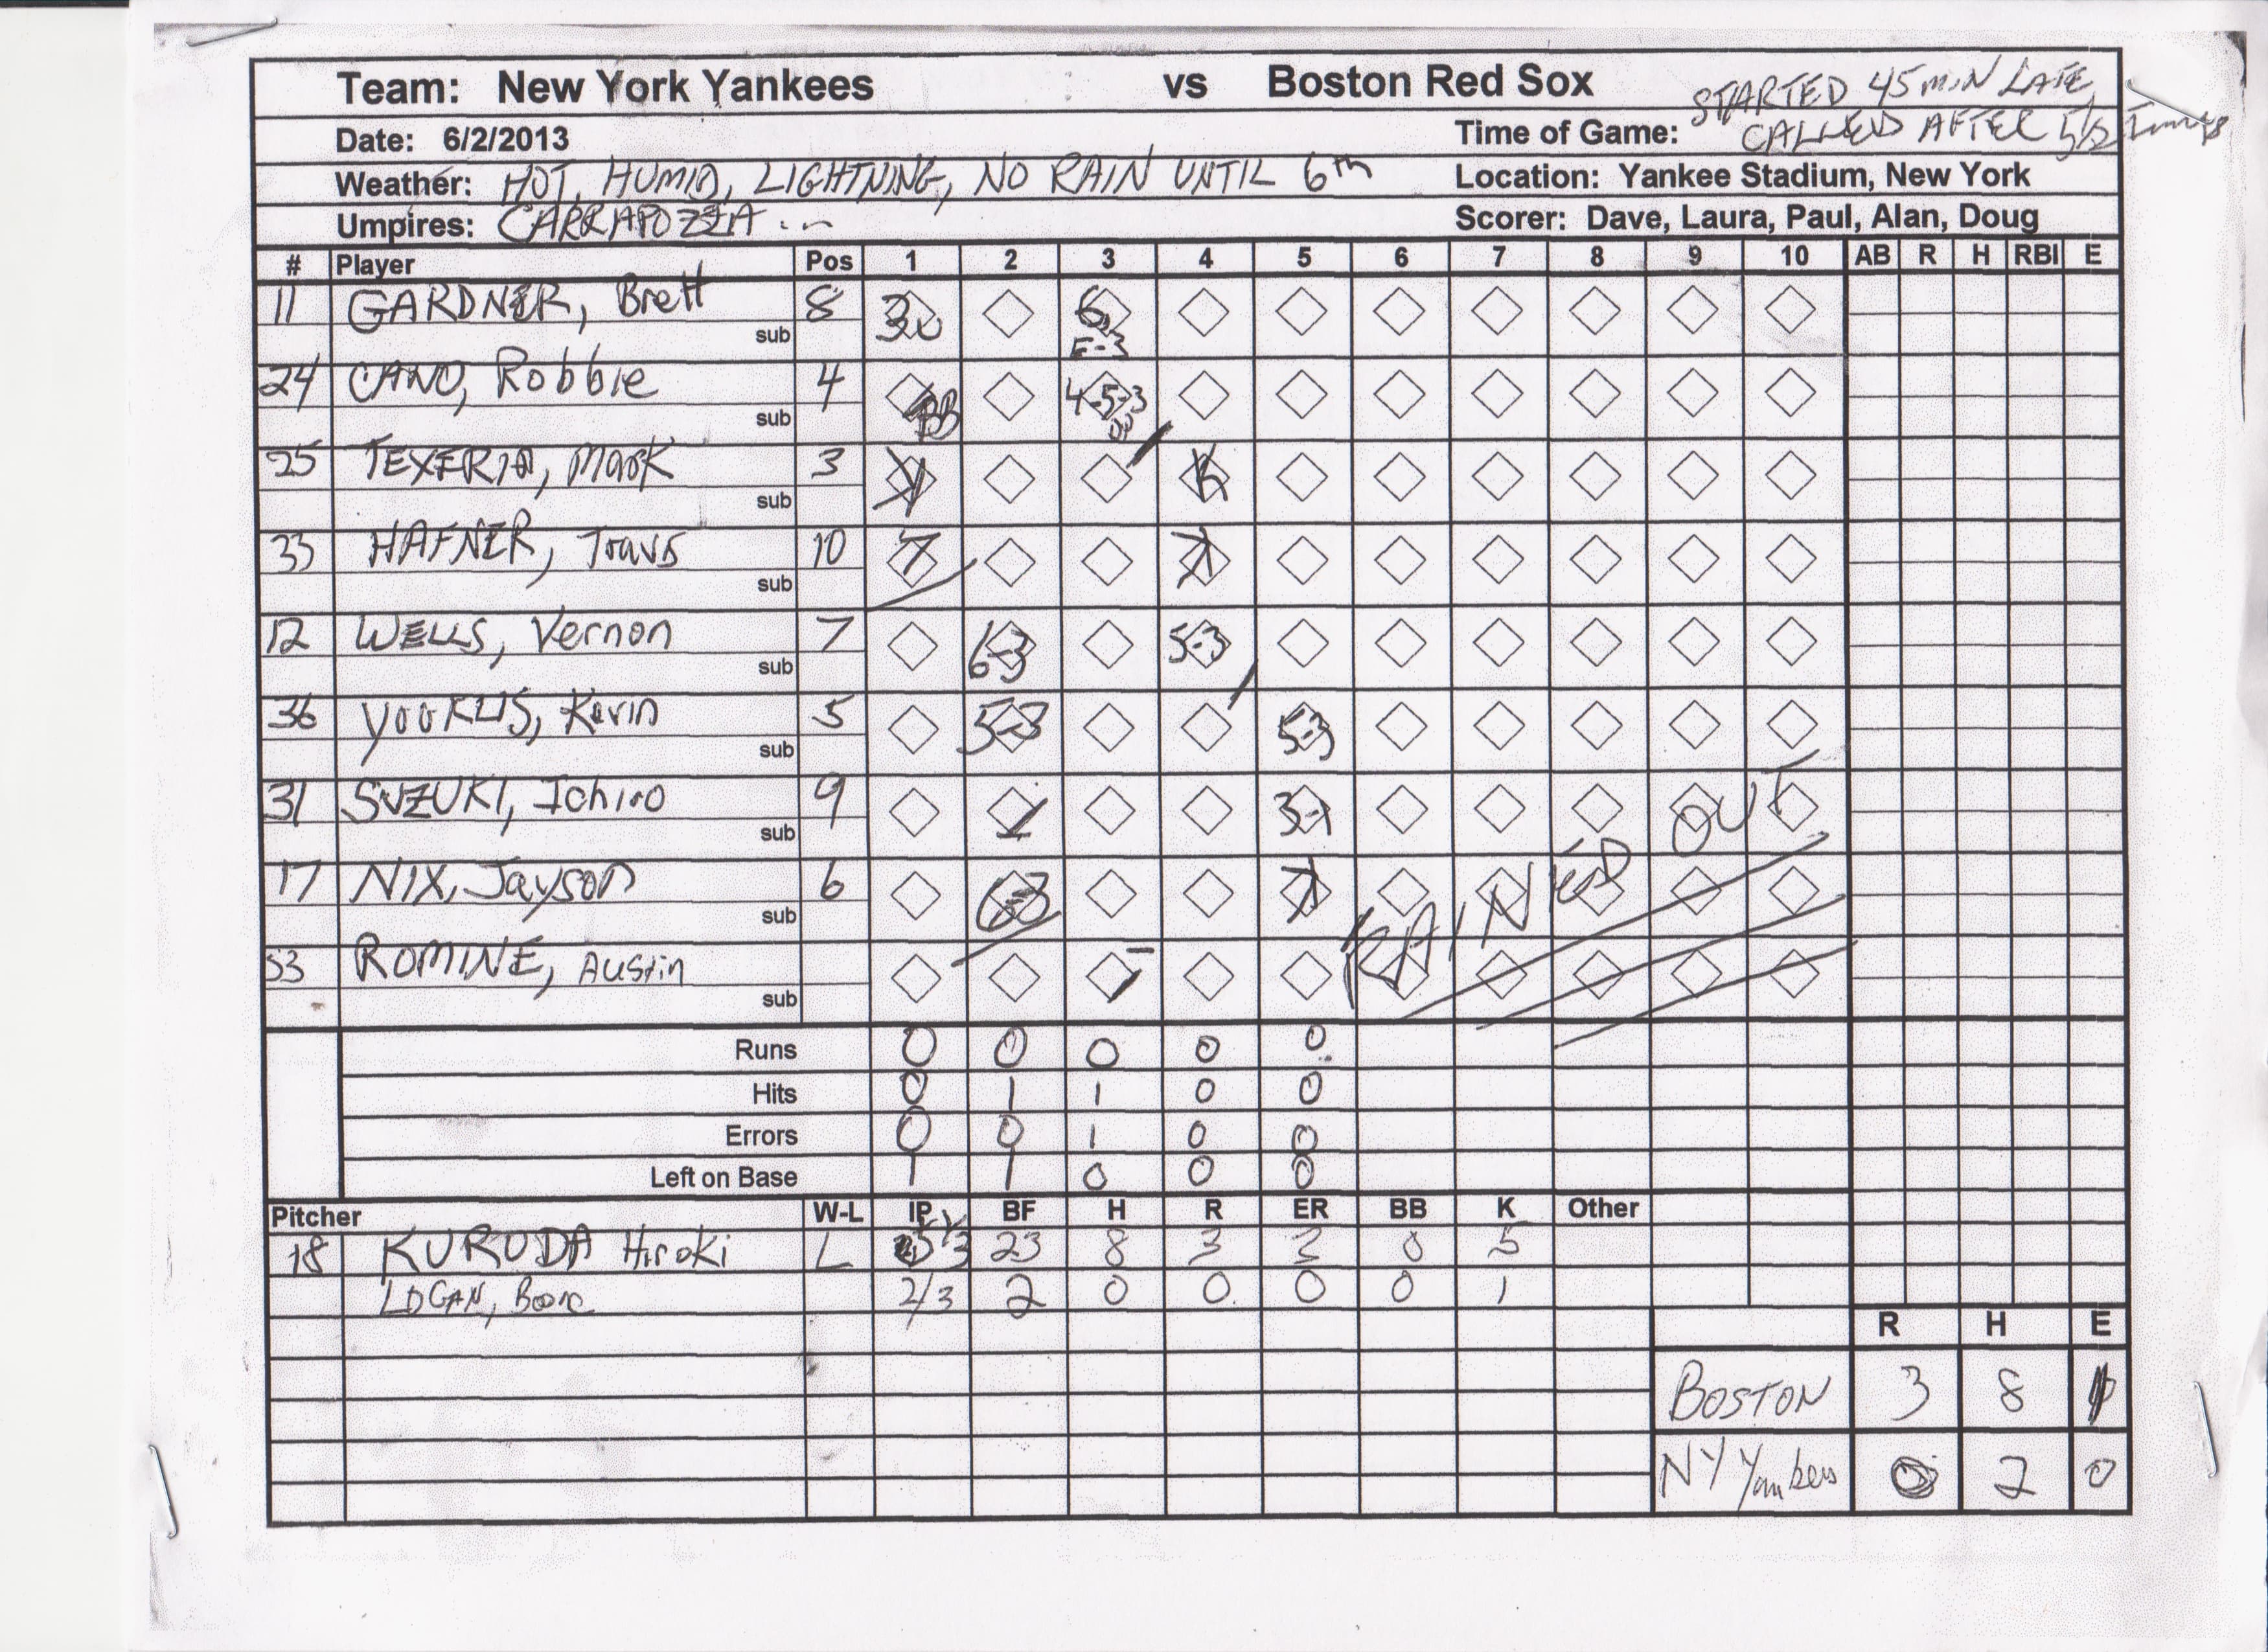 Team: New York Yankees vs Boston Red Sox STARTED 45 MIN LATE,
Date: 6/2/2013 Time of Game: CALLED AFTER 5 1/2 Innings
Weather: HOT, HUMID, LIGHTNING, NO RAIN UNTIL 6th Location: Yankee Stadium, New York
Umpires: CARRAPOZZA ... Scorer: Dave, Laura, Paul, Alan, Doug
# Player Pos 1 2 3 4 5 6 7 8 9 10 AB R H RBI E
11 GARDNER, Brett 8 6
sub E-3
24 CANO, Robbie 4 BB 4-5-3
sub
25 TEXERIA, Mark 3 K
sub
33 HAFNER, Travis 10 7
sub
12 WELLS, Vernon 7 6-3 5-3
sub
36 YOUKLIS, Kevin 5 5-3 5-3
sub
31 SUZUKI, Ichiro 9 3-1
sub
17 NIX, Jayson 6 6-3
sub
RAINED OUT
53 ROMINE, Austin
sub
Runs 0 0 0 0 0
Hits 0 1 1 0 0
Errors 0 0 1 0 0
Left on Base 1 1 0 0 0
Pitcher W-L IP BF H R ER BB K Other
18 KURODA Hiroki L 23 8 3 3 0 5
LOGAN, Boone 2/3 2 0 0 0 0 1
R H E
BOSTON 3 8
NY Yankees 0 2 0